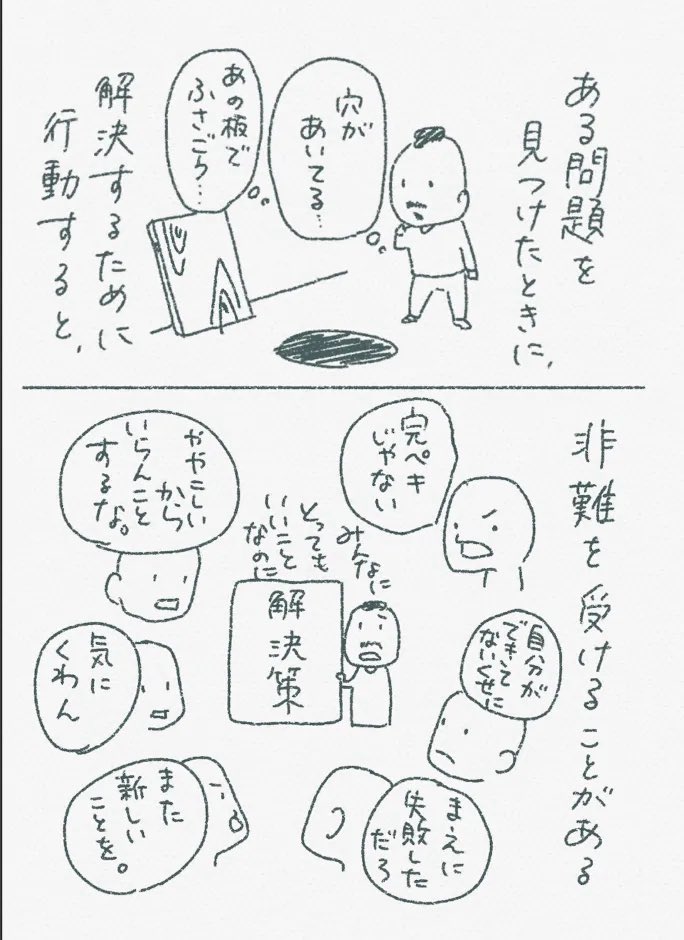 ある問題を
見つけたときに、
穴が
あいてる…
あの板で
ふさごう…
解決するために
行動すると、
非難を受けることがある
完ペキ
じゃない
自分が
できて
ないくせに
まえに
失敗した
だろ
みんなに
とっても
いいこと
なのに
解決策
ややこしい
から
いらんこと
するな。
気に
くわん
また
新しい
ことを。